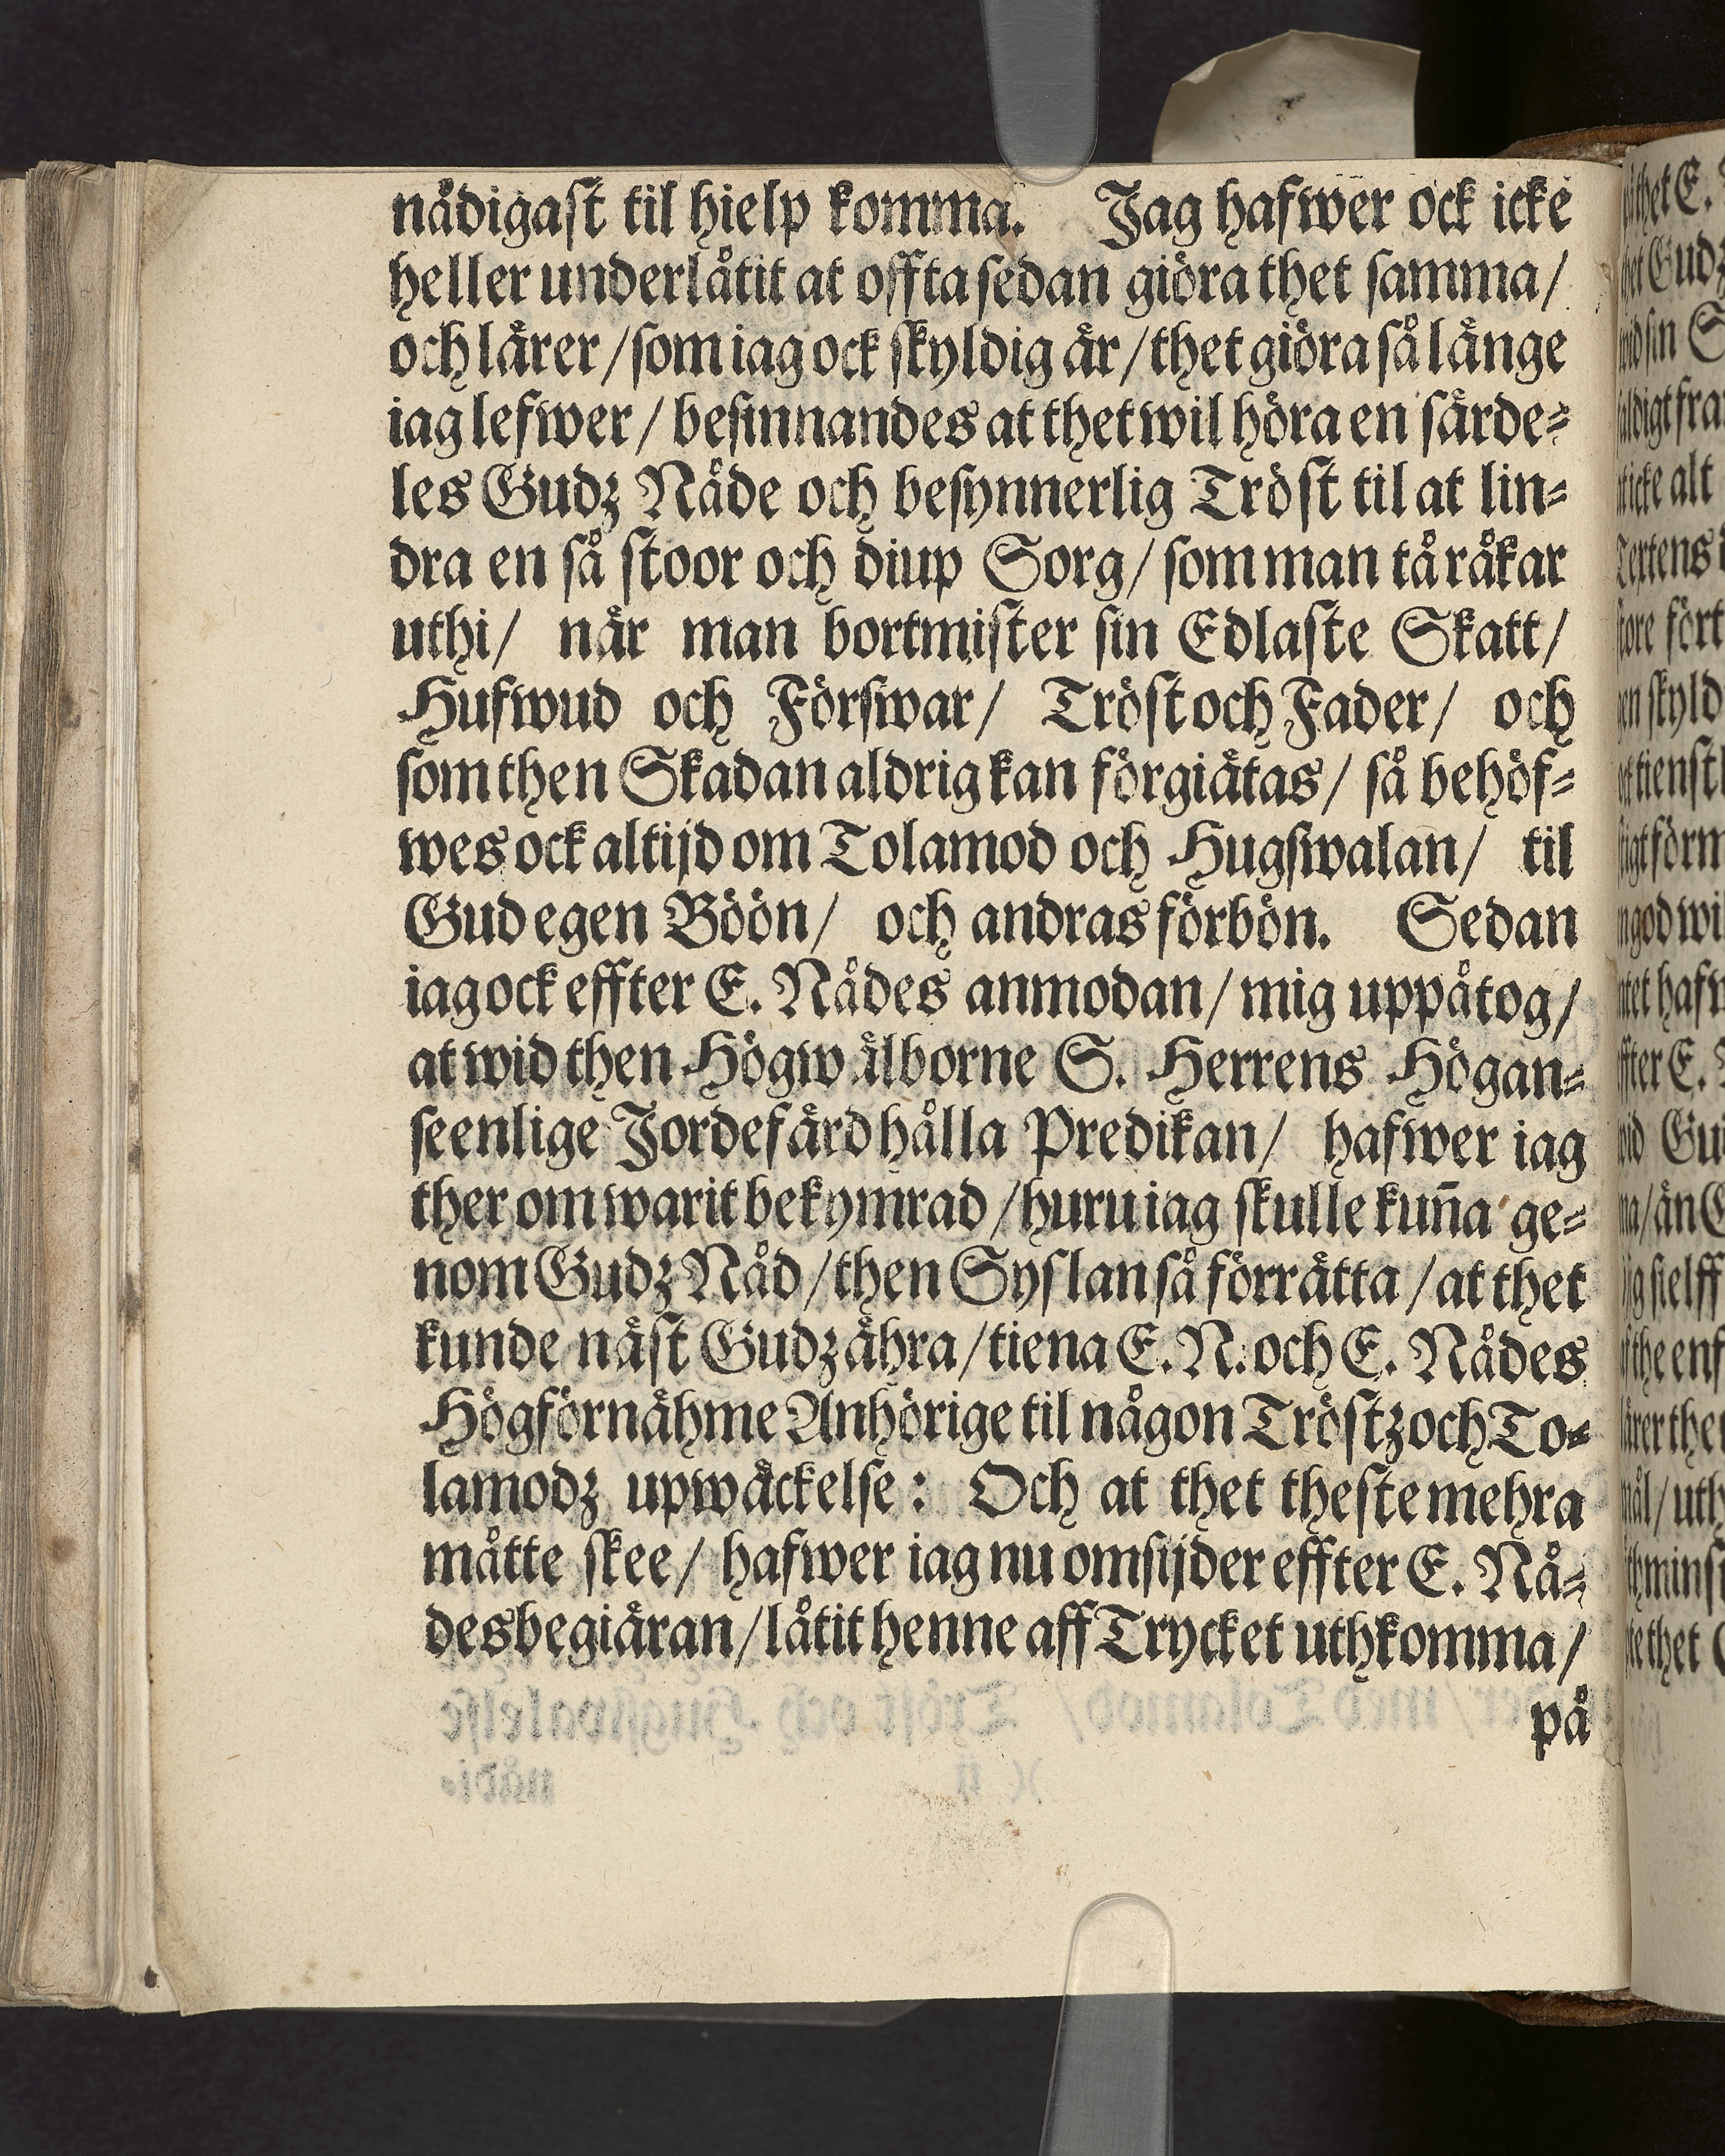 nådigast til hielp komma. Jag hafwer ock icke
heller underlåtit at offta sedan giöra thet samma/
och lärer/som iag ock skyldig är/thet giöra så länge
iag lefwer/ besinnandes at thet wil höra en särde=
les Gudz Nåde och besynnerlig Tröst til at lin=
dra en så stoor och diup Sorg/ som man tå råkar
uthi/ når man bortmister sin Edlaste Skatt/
Hufwud och Förswar/ Tröst och Fader/ och
som then Skadan aldrig kan förgiätas/ så behöf=
wes ock altijd om Tolamod och Hugswalan/ til
Gud egen Böön/ och andras förbön. Sedan
iag ock effter E. Nådes anmodan/ mig uppåtog/
at wid then Högwälborne S. Herrens Högan=
seenlige Jordefärd hålla Predikan/ hafwer iag
ther om warit bekymrad /huru iag skulle kun̄a ge=
nom Gudz Nåd/then Syslan så förrätta /at thet
kunde näst Gudz ähra/tiena E. N. och E. Nådes
Högförnähme Anhörige til någon Tröstz och To=
lamodz upwäckelse: Och at thet theste mehra
måtte skee/ hafwer iag nu omsijder effter E. Nå=
des begiäran/låtit henne aff Trycket uthkomma/
på